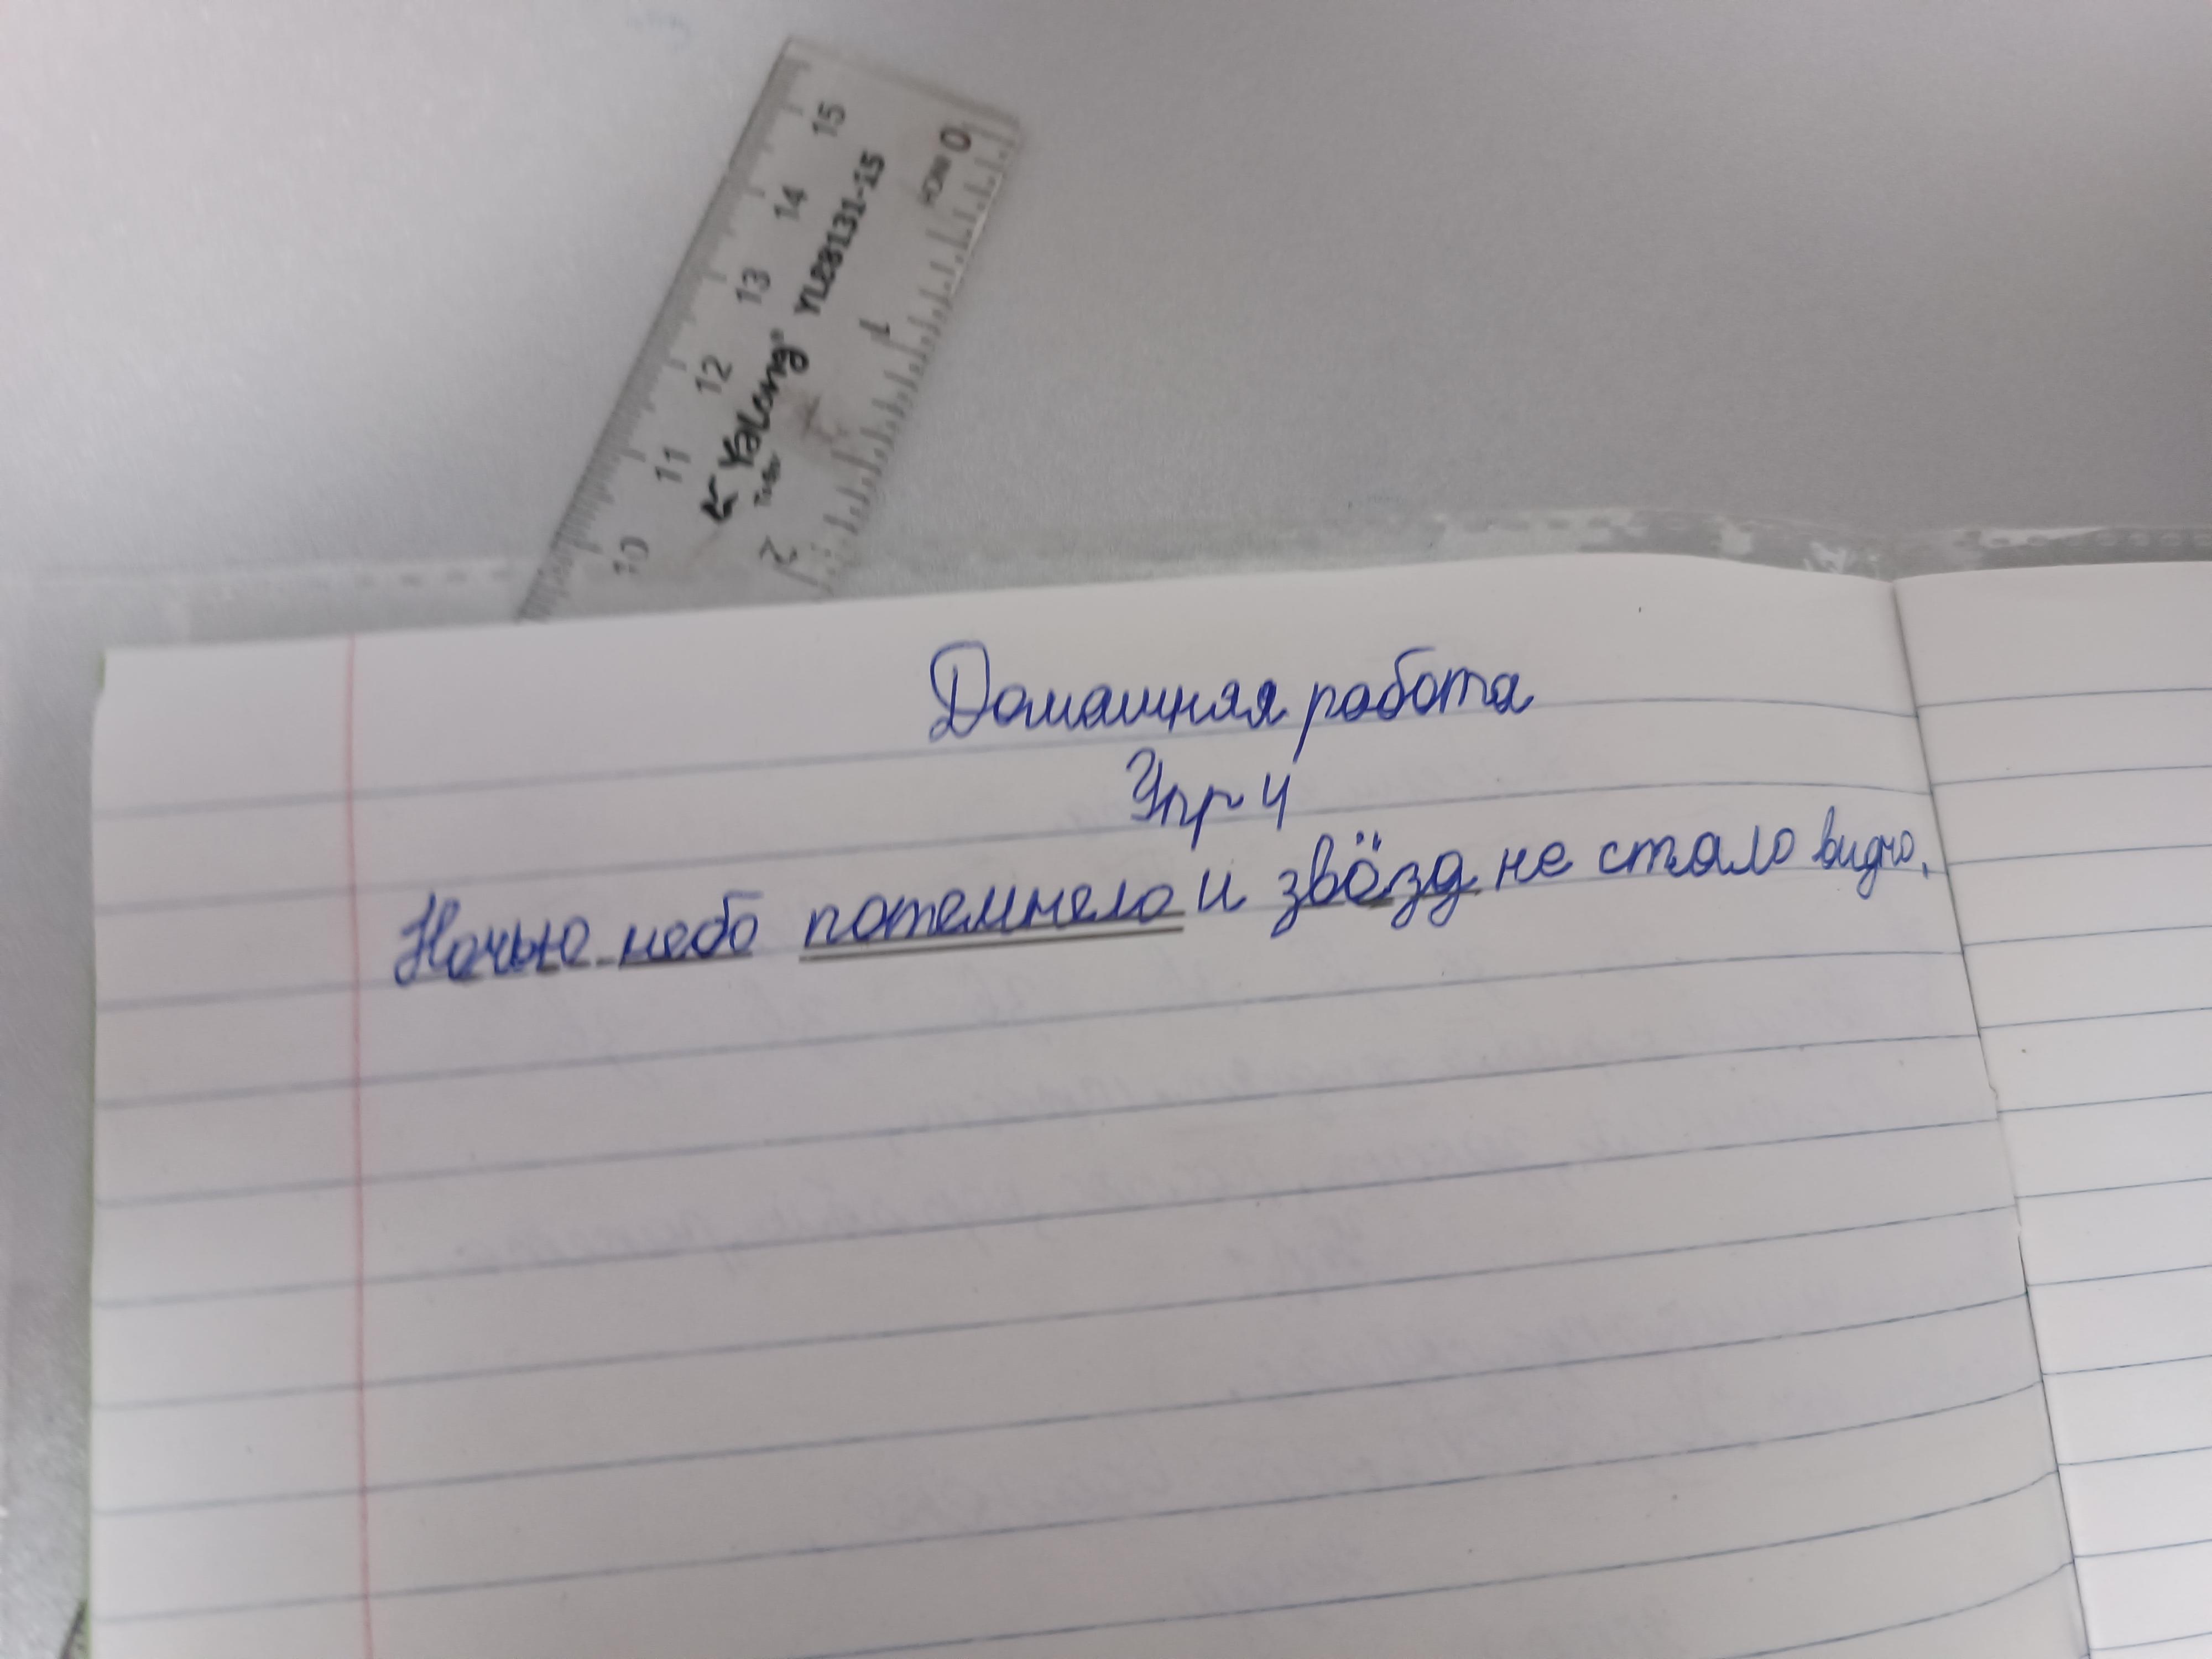 15
14
13
12
11
10
YaLong® YL28131-15
INCH 0
1
2
Домашняя работа
Упр 4
Ночью небо потемнело и звёзд не стало видно.